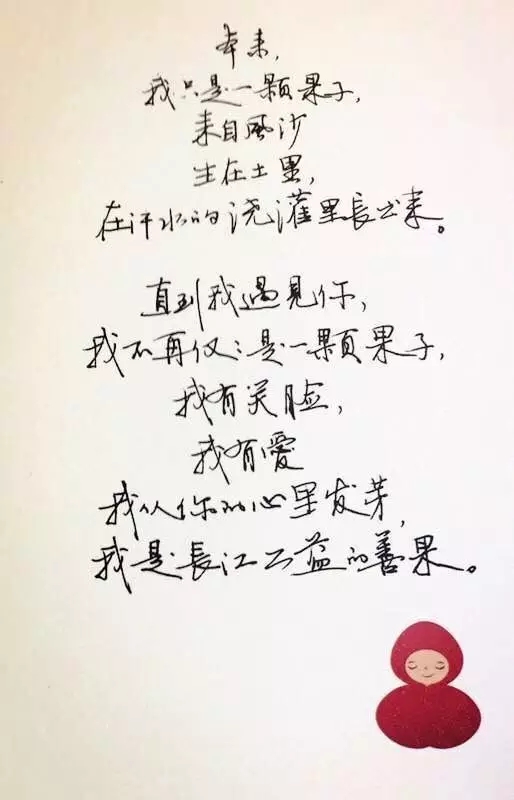 本来,
我只是一颗果子,
来自風沙
生在土里,
在汗水的浇灌里長出来。
直到我遇見你,
我不再仅仅是一颗果子,
我有笑脸,
我有爱
我从你的心里发芽,
我是長江公益的善果。